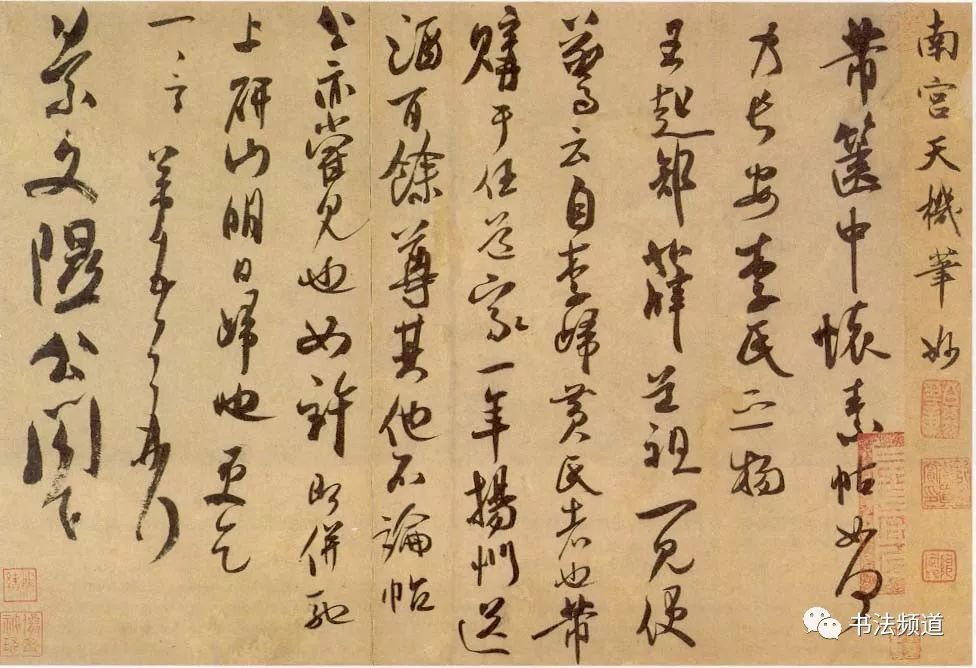 南宮天機筆妙
芾篋中懷素帖如何
乃長安李氏之物
王起部薛道祖一見便
驚云自李歸黃氏者也芾
購于任道家一年揚州送
酒百餘尊其他不論帖
公亦嘗見也如許即併馳
上研山明日歸也更乞
一言芾頓首再拜
景文隰公閣下
书法频道